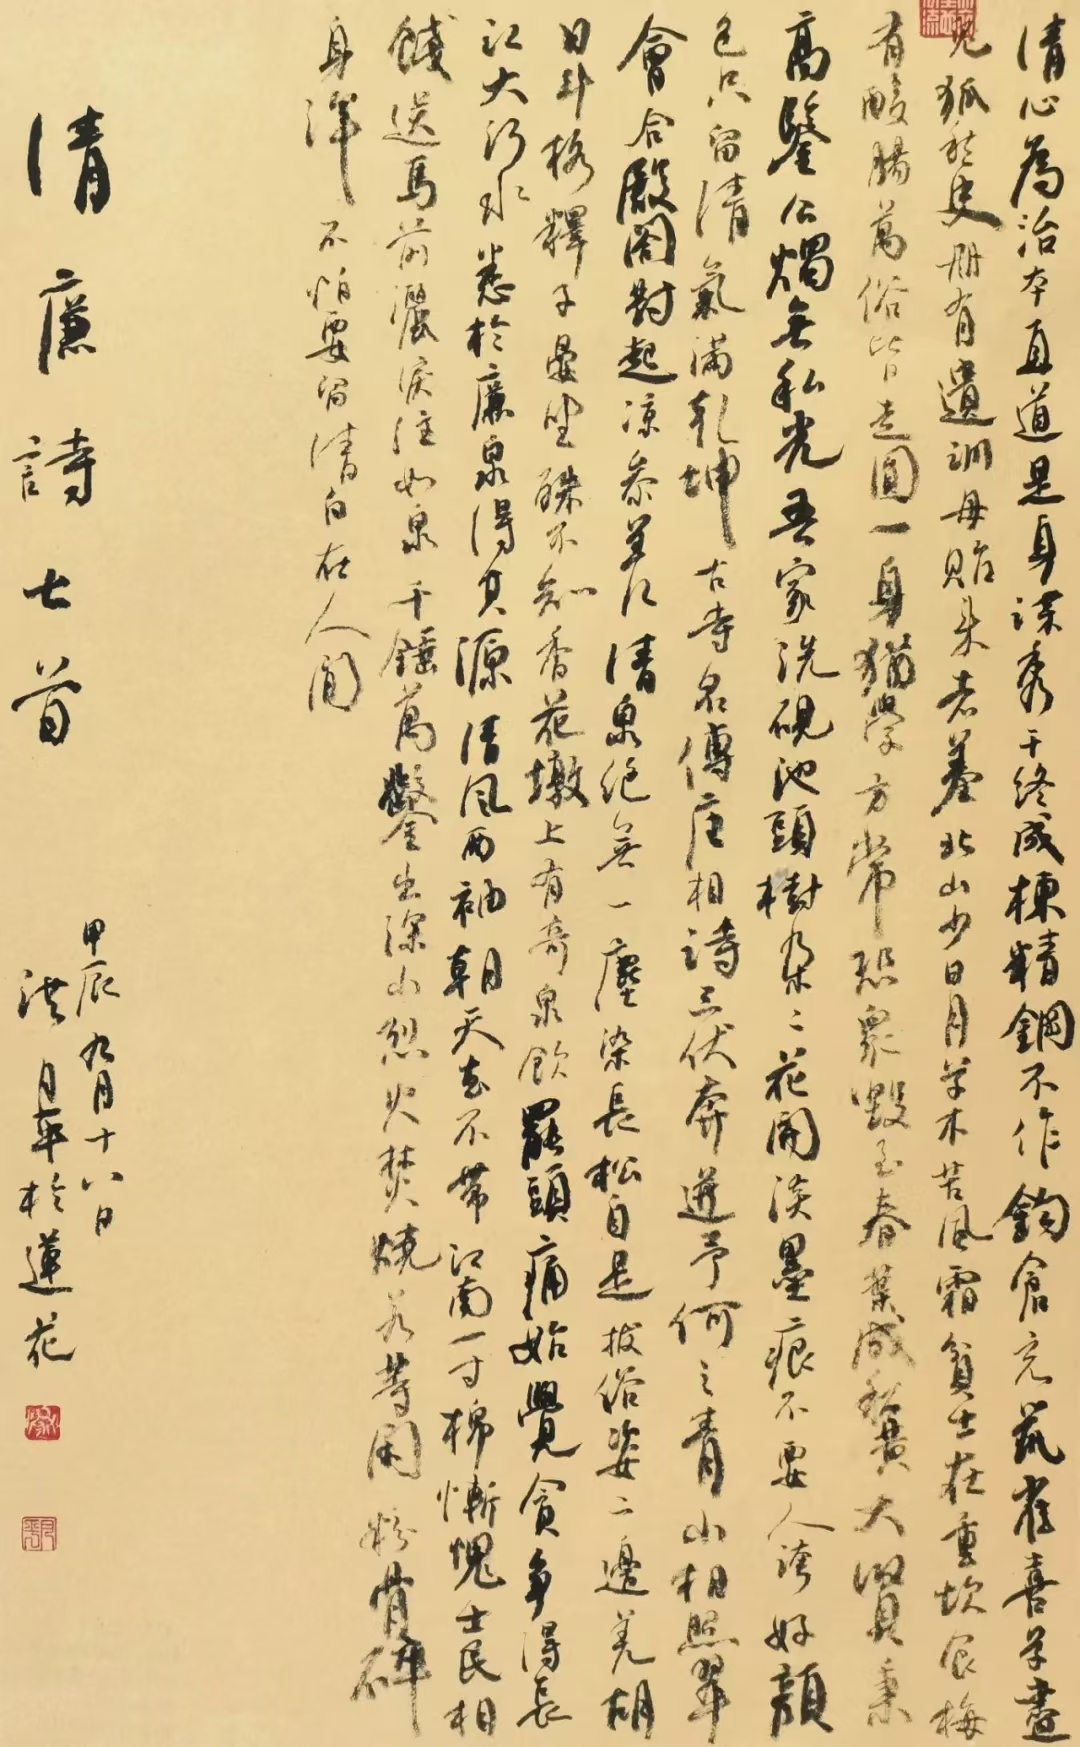 清心為治本直道是身謀秀干終成棟精鋼不作鈎倉充鼠雀喜草盡
兔狐愁史冊有遺訓毋貽来者羞北山少日月草木苦風霜貧士在重坎食梅
有酸腸萬俗皆走圓一身猶學方常恐衆毀至春葉成秋黃大賢秉
高鑒公燭無私光吾家洗硯池頭樹朶〻花開淡墨痕不要人誇好顏
色只留清氣滿乾坤古寺名傳唐相詩三伏奔遊予何之青山相照翠
會合殿閣對起凉參差清泉絕無一塵染長松自是拔俗姿二邊羌胡
日鬥格釋子晏坐殊不知香花墩上有奇泉飲罷頭痛始覺貪爭得長
江大河水悉於廉泉得其源清風兩袖朝天去不帶江南一寸棉慚愧士民相
餞送馬前灑淚注如泉千錘萬鑿出深山烈火焚燒若等閑粉骨碎
身渾不怕要留清白在人間
清廉詩七首
甲辰九月十八日
洪月於蓮花